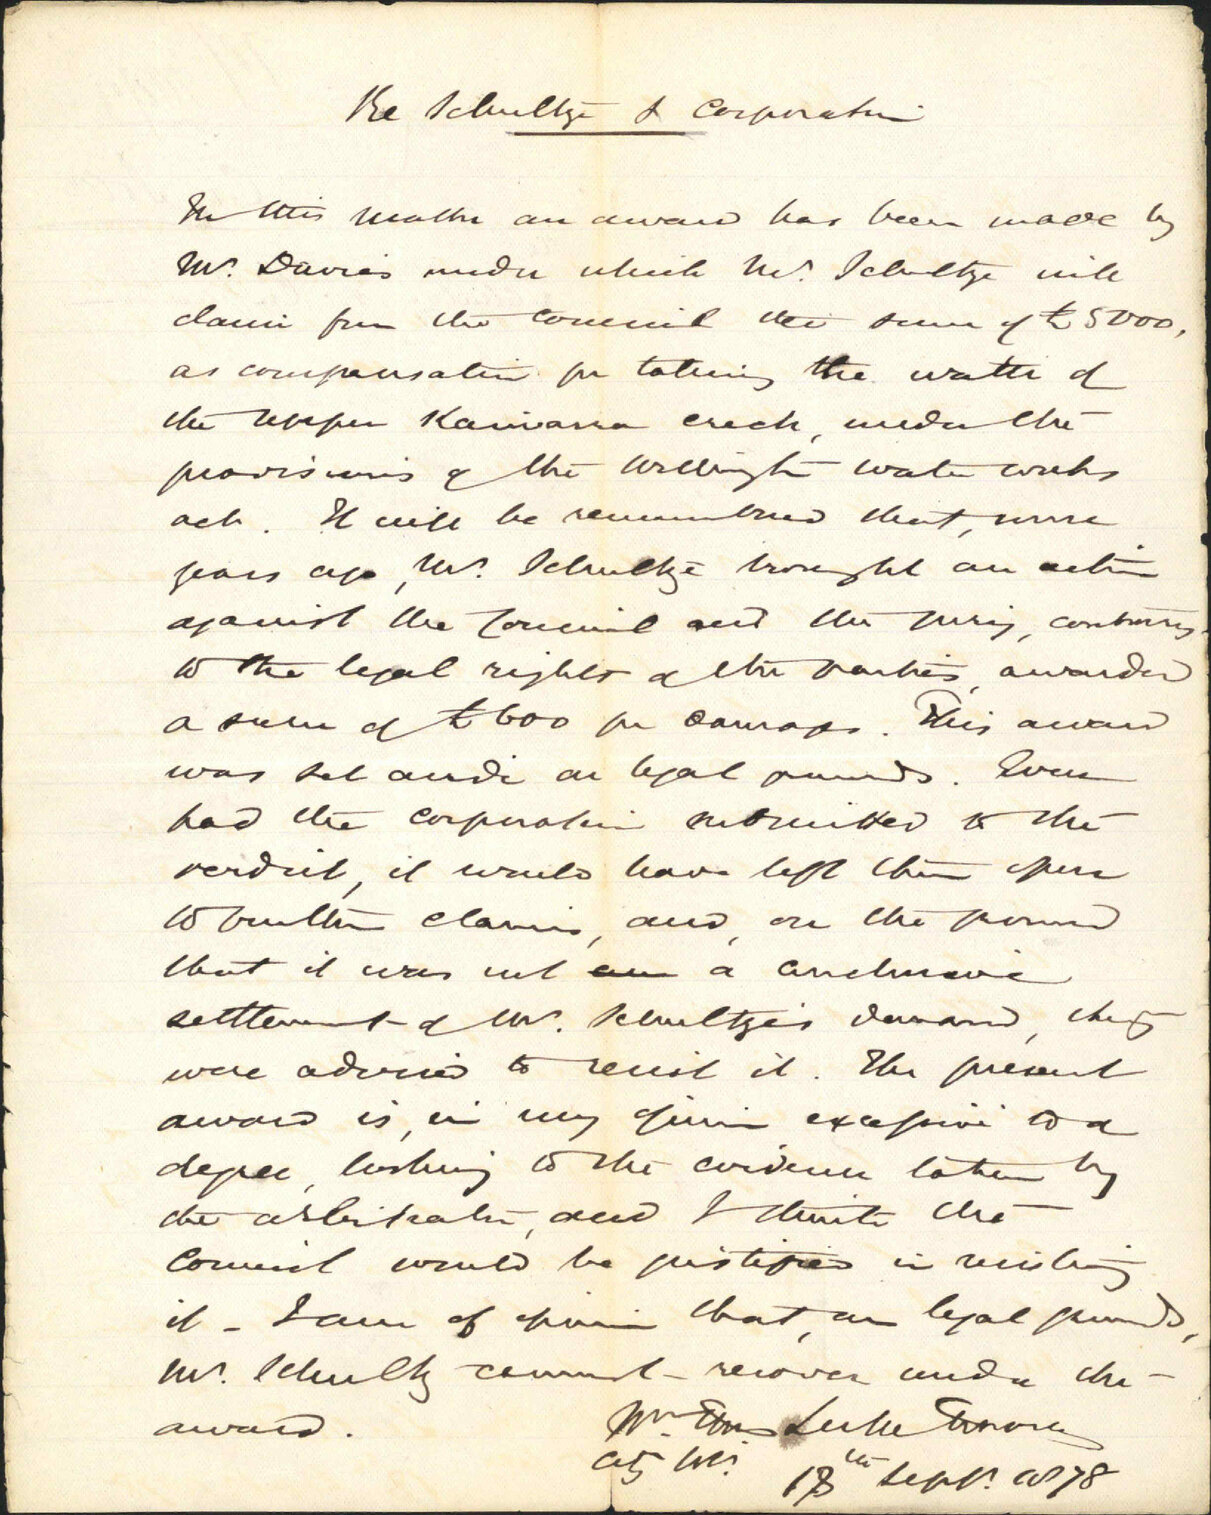 Re Schultze & Corporation
In this matter an award has been made by
Mr. Davies under which Mr. Schultze will
claim from the Council the sum of £5000,
as compensation for taking the water of
the upper Kaiwarra creek, under the
provisions of the Wellington water works
act. It will be remembered that, some
years ago, Mr. Schultze brought an action
against the Council and the jury, contrary
to the legal rights of the parties, awarded
a sum of £600 for damages. This award
was set aside on legal grounds. Even
had the corporation submitted to the
verdict, it would have left them open
to further claims, and, on the ground
that it was not a conclusive
settlement of Mr. Schultze's demand, they
were advised to resist it. The present
award is, in my opinion excessive to a
degree, looking to the evidence taken by
the arbitrator, and I think the
Council would be justified in resisting
it - I am of opinion that, on legal grounds,
Mr. Schultz cannot recover under the
award.
Wm. Thos Locke Travers
City Solr.
Sept. 1878